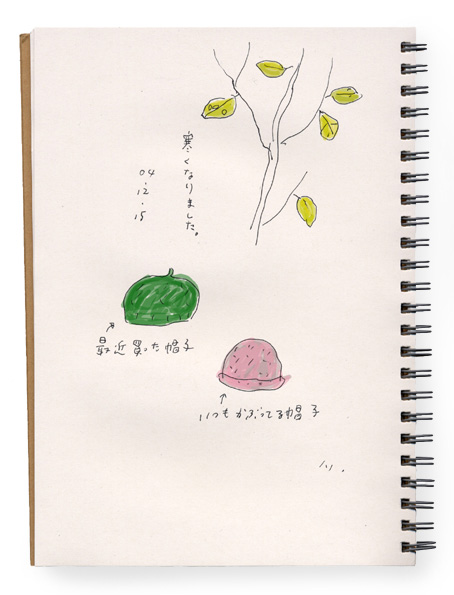 寒くなりました。
04.12.15
最近買った帽子
いつもかぶってる帽子